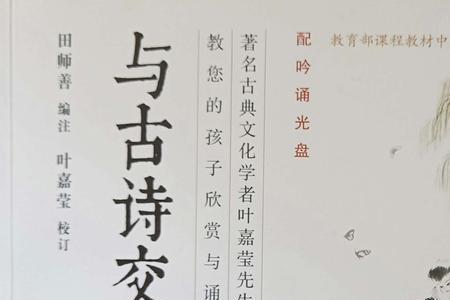 教育部课程教材中
配吟诵光盘
著名古典文化学者叶嘉莹先生
教您的孩子欣赏与诵
与古诗交
田师善 编注 叶嘉莹 校订